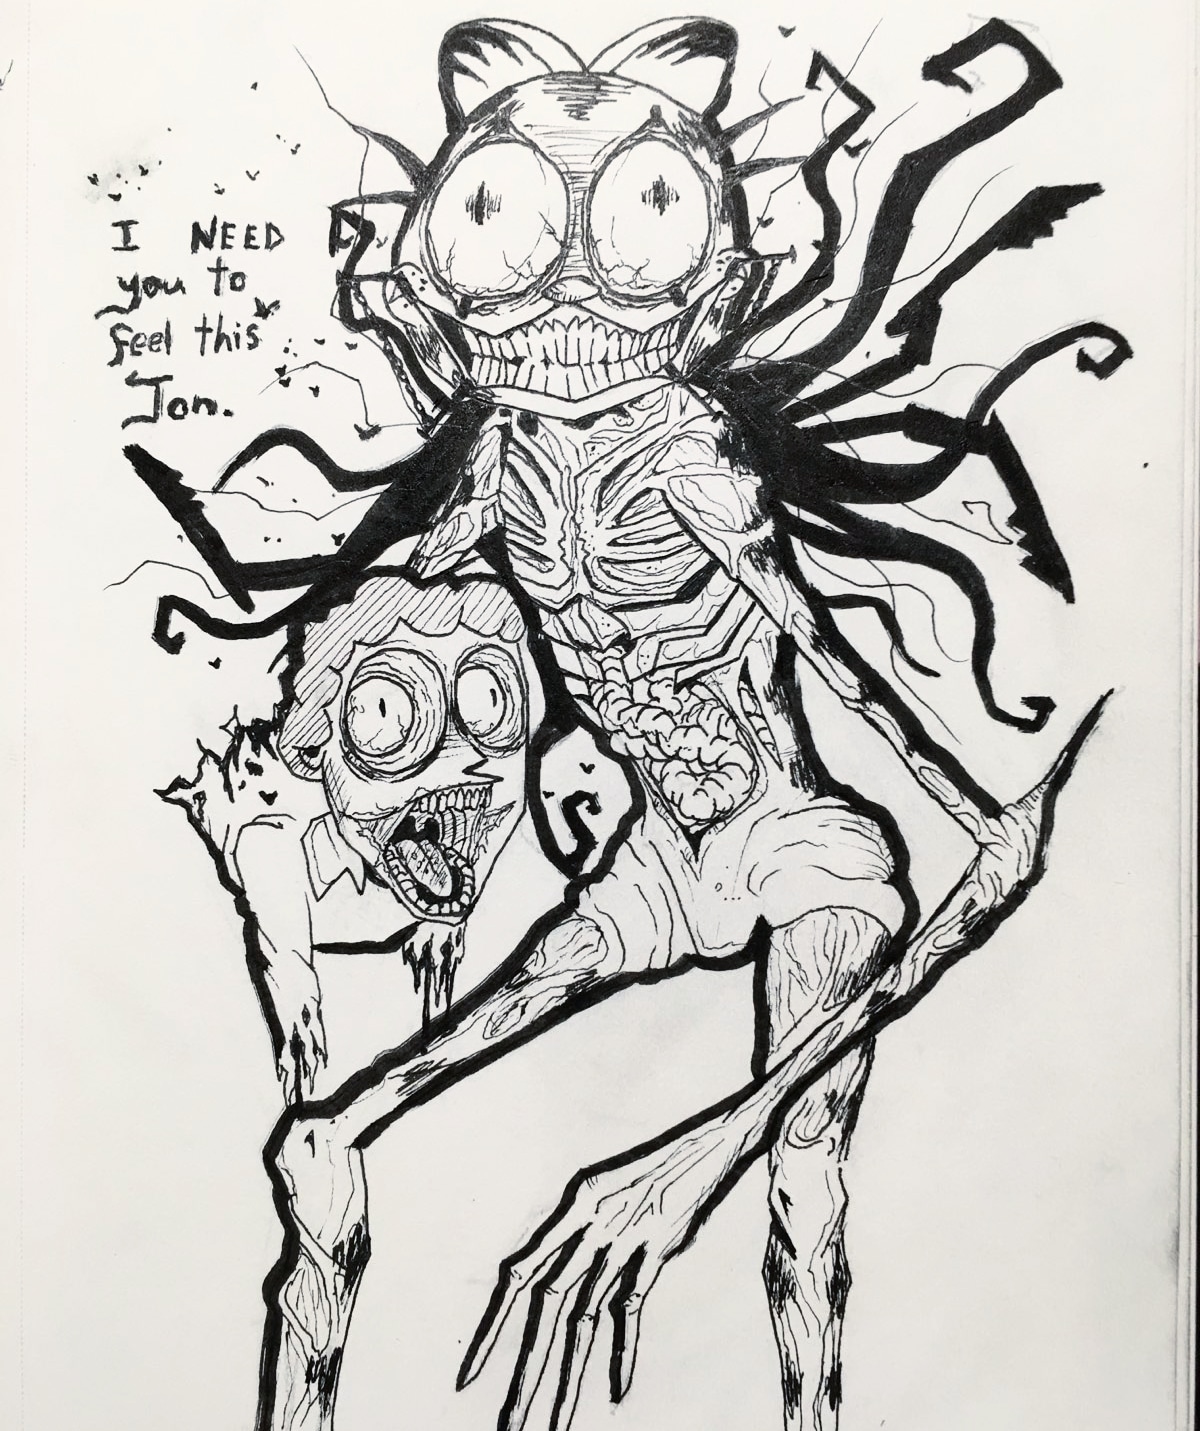 I NEED
you to
feel this
Jon.